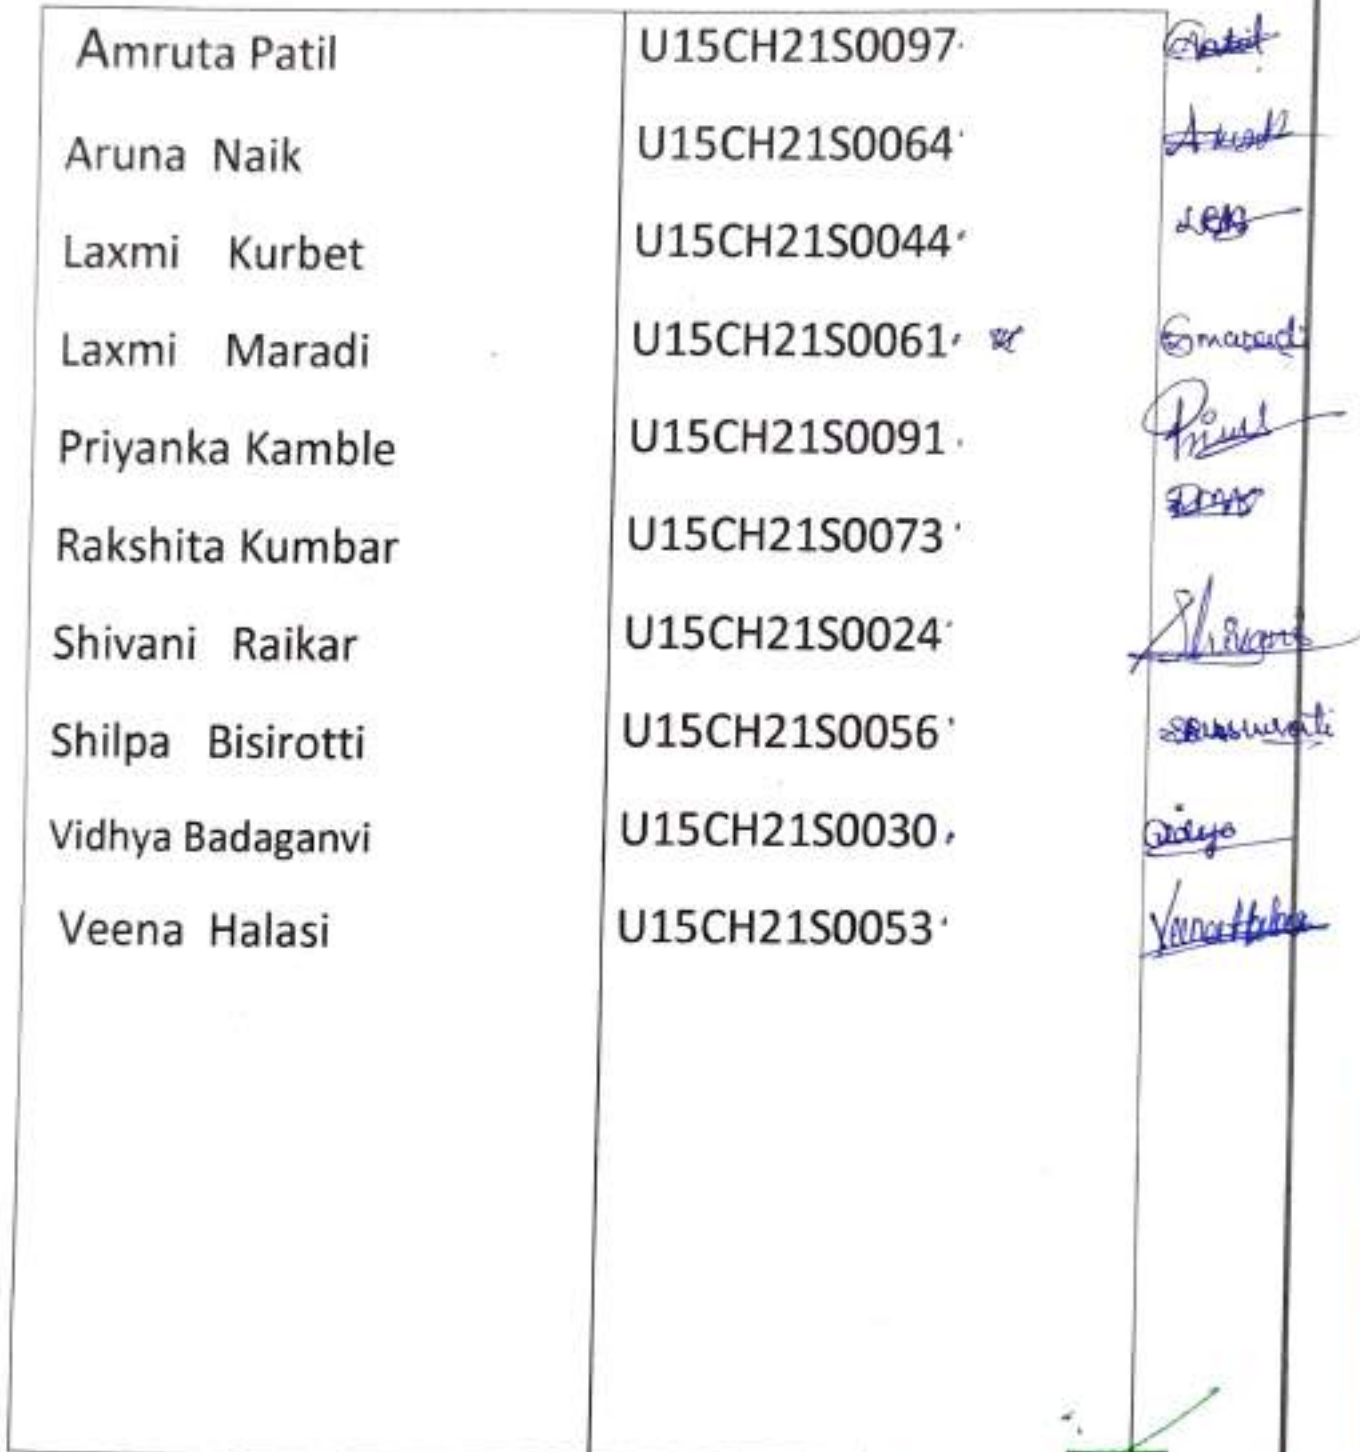 Amruta Patil U15CH21S0097
Aruna Naik U15CH21S0064
Laxmi Kurbet U15CH21S0044
Laxmi Maradi U15CH21S0061 Smaradi
Priyanka Kamble U15CH21S0091
Rakshita Kumbar U15CH21S0073
Shivani Raikar U15CH21S0024 Shivani
Shilpa Bisirotti U15CH21S0056
Vidhya Badaganvi U15CH21S0030 Vidya
Veena Halasi U15CH21S0053